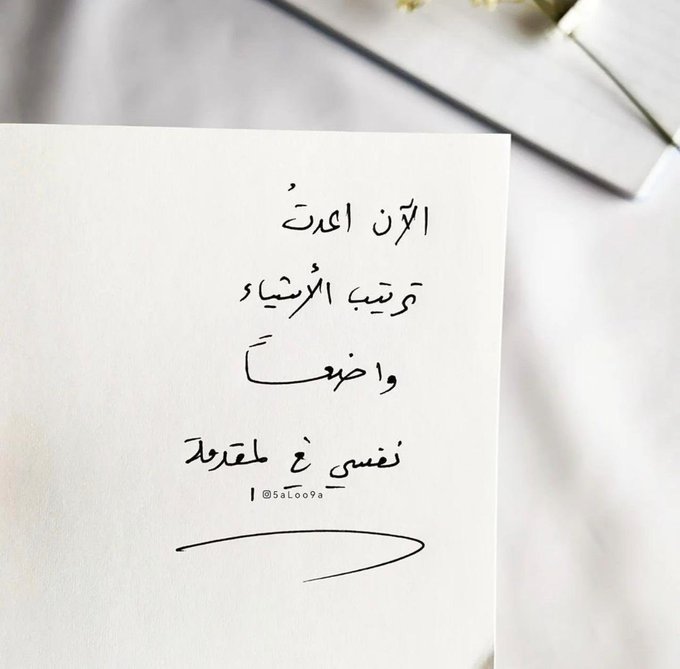 الآن اعدتُ
ترتيب الأشياء
واضعاً
نفسي في لمقدمة
ا @5aLoo9a